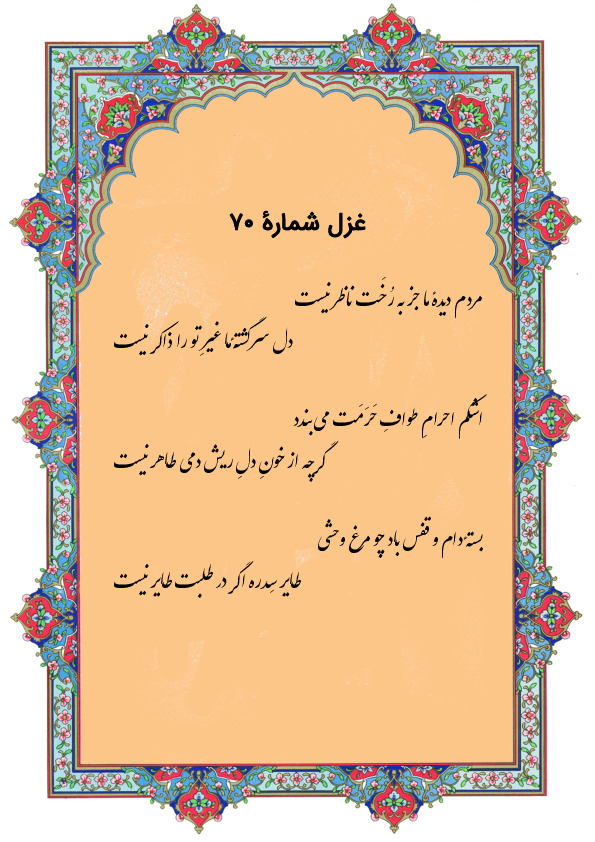 غزل شمارهٔ ۷۰
مردم دیدهٔ ما جز به رُخَت ناظر نیست
دل سرگشتهٔ ما غیرِ تو را ذاکر نیست
اشکم احرامِ طوافِ حَرَمَت می‌بندد
گرچه از خونِ دلِ ریش دمی طاهر نیست
بستهٔ دام و قفس باد چو مرغ وحشی
طایر سِدره اگر در طلبت طایر نیست